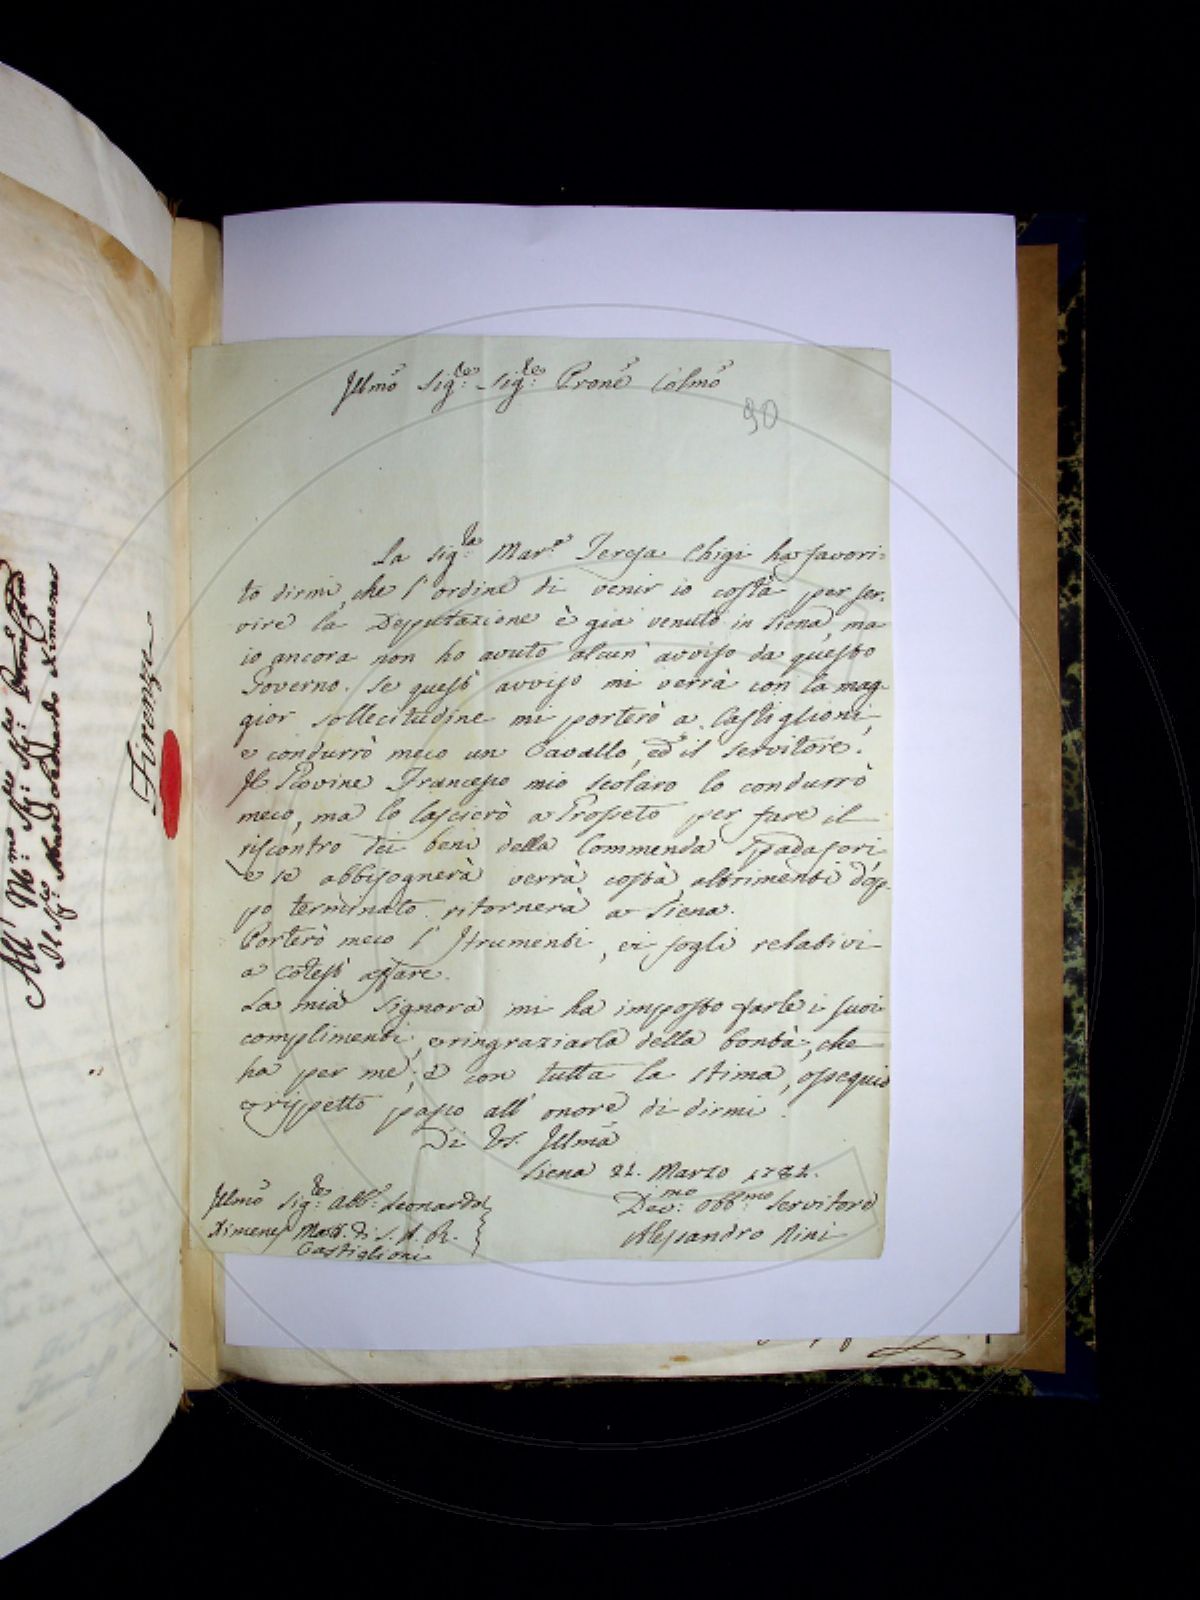 Illmo Sig:re Sig:re Prone Colmo
90
La Sig:ra Mar.a Teresa Chigi ha favori=
to dirmi, che l'ordine di venir io costà per ser.
vire la Deputazione è già venuto in Siena, ma
io ancora non ho avuto alcun' avviso da questo
Governo. Se quest' avviso mi verrà con la mag-
gior sollecitudine mi porterò a Castiglioni,
e condurrò meco un Cavallo, ed il servitore.
Il Giovine Francesco mio scolaro lo condurrò
meco, ma lo lascierò a Grosseto per fare il
riscontro dei beni della Commenda Spadafori,
e se abbisognerà verrà costà altrimenti dop-
po terminato ritornerà a Siena.
Porterò meco l' Istrumenti, e i fogli relativi
a cotest' affare.
La mia Signora mi ha imposto farle i suoi
complimenti, e ringraziarla della bontà, che
ha per me; e con tutta la stima, ossequio
e rispetto passo all' onore di dirmi.
Di Vs. Illma
Siena 21. Marzo 1782.
Illmo Sig:re Abb:e Leonardo
Ximenes Mat. di S. A. R.
Castiglioni
Dev:mo Obb:mo Servitore
Alessandro Nini
All' Ill:mo Sig:re Sig:re Prone Colmo
Il Sig:re Abate Leonardo Ximenes
Firenze